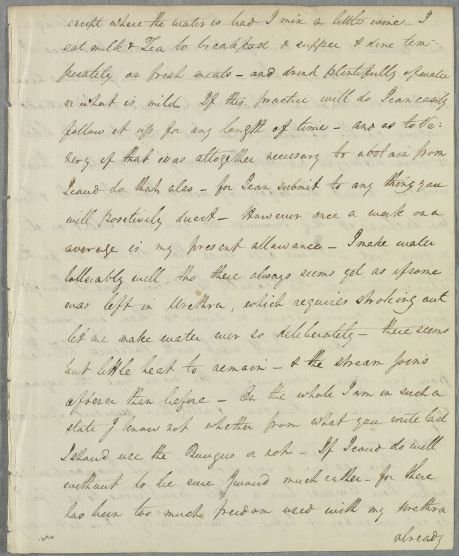 except where the water is bad I mix a little wine - I
eat milk & Tea to breakfast & supper & dine tem-
perately on fresh meats - and drink plentifully of water
or what is mild If this practice will do I can easily
follow it up for any length of time - and as to Ve:
nery if that was altogether necessary to abstain from
I coud do that also - for I can submit to any thing you
will positively direct - However once a week on a
average is my present allowance - I make water
tollerably well, tho there always seems yet as if some
was left in Urethra, which requires stroking out
let me make water ever so deliberately - there seems
but little heat to remain - & the stream forms
a freer than before - On the whole I am in such a
state I know not whether from what you wrote last
I shoud use the Bougies or not - If I coud do well
without to be sure I woud much rather - for there
has been too much freedom used with my Urethra
already